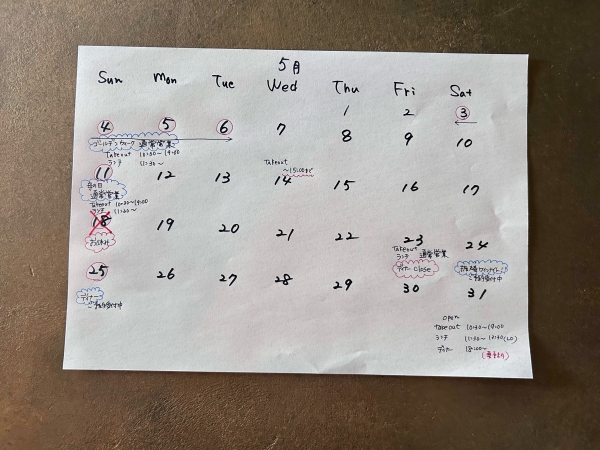 5月
Sun Mon Tue Wed Thu Fri Sat
1 2 3
4 5 6 7 8 9 10
ゴールデンウィーク 通常営業
Takeout 10:30~19:00
ランチ 11:30~
Takeout
~15:00まで
11 12 13 14 15 16 17
母の日
通常営業
Takeout 10:30~19:00
ランチ 11:30~
18 19 20 21 22 23 24
お休み
Takeout
ランチ 通常営業
ディナー close
ご予約受付中
25 26 27 28 29 30 31
ディナー
ご予約受付中
open
takeout 10:30~19:00
ランチ 11:30~13:30(LO)
ディナー 18:00~